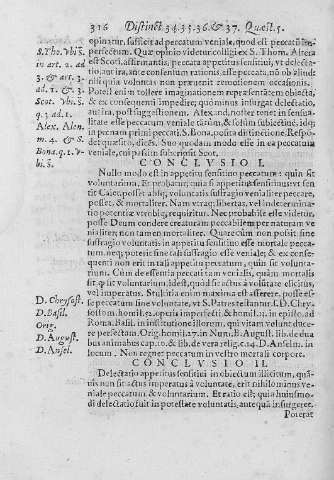 316 Distinct. 34.35.36. & 37. Quæst. 5.
opinatur, sufficit ad peccatum veniale, quod est peccatũ im-
perfectum. Quæ opinio videtur colligi ex S. Thom. Altera
est Scoti, affirmantis, peccata appetitus sensitiui, vt delecta-
tio, aut ira, ante consensum rationis, esse peccata, nõ ob aliud:
nisi quia voluntas non præuenit eiusmodi occasiones.
Potest enim tollere imaginationem repræsentãtem obiecta,
ut ex consequenti impedire, quominus insurgat delectatio,
aut ira, post suggestionem. Alexand. noster tenet in sensua-
litate esse peccatum veniale tantùm, & solùm subiectiuè, idq́;
in pœnam primi peccati. S. Bona. posita distinctione. Respõ-
det quæsito, dicẽs. Suo quodam modo esse in ea peccatum
veniale, cui passim subscripsit Scot.
CONCLVSIO I.
Nullo modo est in appetitu sensitiuo peccatum: quin sit
voluntarium. Et probatur, quia si appetitus sensitiuus, vt sen-
tit Caiet. posset absq; voluntatis suffragio venialiter peccare,
posset, & mortaliter. Nam vtraq; libertas, vel indetermina-
tio potentiæ vtrobiq; requiritur. Nec probabile esse videtur,
posse Deum condere creaturam peccabilem per naturam ve-
nialiter, & non mortaliter. Quare cùm non possit sine
suffragio voluntatis in appetitu sensitiuo esse mortale pecca-
tum, neq; poterit sine tali suffragio esse veniale; & ex conse-
quenti non erit in tali appetitu peccatum, quin sit volunta-
rium. Cùm de essentia peccati tam venialis, quàm mortalis
sit q̃ sit voluntarium, idest, quòd sit actus à volũtate elicitus,
vel imperatus. Stultitia enim maxima est asserere, posse es-
se peccatum sine voluntate, vt S. Patres testantur. f. D. Chry-
sostom. homil. 22. operis imperfecti & homil. 21. in epist. ad
Roma. Basil. in institutione illorum, qui vitam volunt duce-
re perfectam. Orig. homil. 27. in Num. B. August. lib. de dua
bus animabus cap. 10. & lib. de vera relig. c. 14. D. Anselm. in
locum. Non regnet peccatum in vestro mortali corpore.
CONCLVSIO II.
Delectatio appetitus sensitiui in obiectum illicitum, quã-
uis non sit actus imperatus à voluntate, erit nihilominus ve-
niale peccatum, & voluntarium. Et ratio est; quia huiusmo-
di delectatio fuit in potestate voluntatis, antequã insurgeret.
Poterat
S. Tho. vbi s̃.
in art. 2. ad
3. & art. 3.
ad. 2. & 3.
Scot. Vbi. s̃.
q. 3. ad. 1.
Alex. Alen.
m. 4. & S.
Bona. q. 1. v-
bi. s̃.
D. Chrysost.
D. Basil.
Orig.
D. August.
D. Ansel.